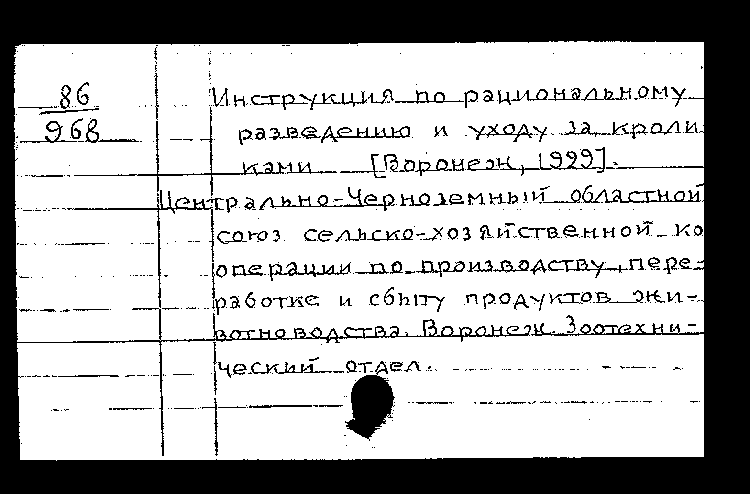 86
968
Инструкция по рациональному
разведению и уходу за кроли
ками [Воронеж, 1929].
Центрально-Черноземный областной
союз сельско-хозяйственной ко
операции по производству, пере-
работке и сбыту продуктов жи-
вотноводства. Воронеж. Зоотехни-
ческий отдел.